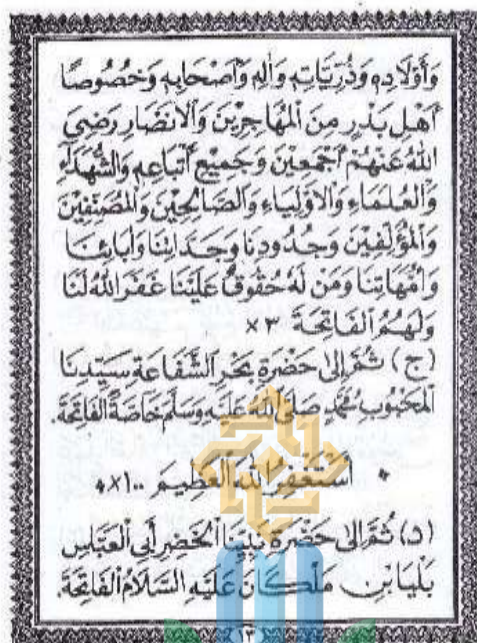 وَأَوْلَادِهِ وَذُرِّيَّاتِهِ وَاٰلِهِ وَاَصْحَابِهِ وَخُصُوصًا
اَهْلِ بَدْرٍ مِنَ الْمُهَاجِرِيْنَ وَالْاَنْصَارِ رَضِيَ
اللهُ عَنْهُمْ اَجْمَعِيْنَ وَجَمِيْعِ اَتْبَاعِهِمْ وَالشُّهَدَاءِ
وَالْعُلَمَاءِ وَالْاَوْلِيَاءِ وَالصَّالِحِيْنَ وَالْمُصَنِّفِيْنَ
وَالْمُؤَلِّفِيْنَ وَجُدُوْدِنَا وَجَدَّاتِنَا وَاٰبَائِنَا
وَاُمَّهَاتِنَا وَمَنْ لَهُ حُقُوْقٌ عَلَيْنَا غَفَرَ اللهُ لَنَا
وَلَهُمُ الْفَاتِحَةَ ×٣
(ج) ثُمَّ اِلٰى حَضْرَةِ بَحْرِ الشَّفَاعَةِ سَيِّدِنَا
الْمَحْبُوْبِ مُحَمَّدٍ صَلَّى اللهُ عَلَيْهِ وَسَلَّمَ خَاصَّةً الْفَاتِحَةَ.
• اَسْتَغْفِرُ اللهَ الْعَظِيْمَ ١٠٠× •
(د) ثُمَّ اِلٰى حَضْرَةِ نَبِيِّنَا الْخَضِرِ أَبِى الْعَبَّاسِ
بَلْيَا بْنِ مَلْكَانَ عَلَيْهِ السَّلَامُ الْفَاتِحَةَ.
١٣